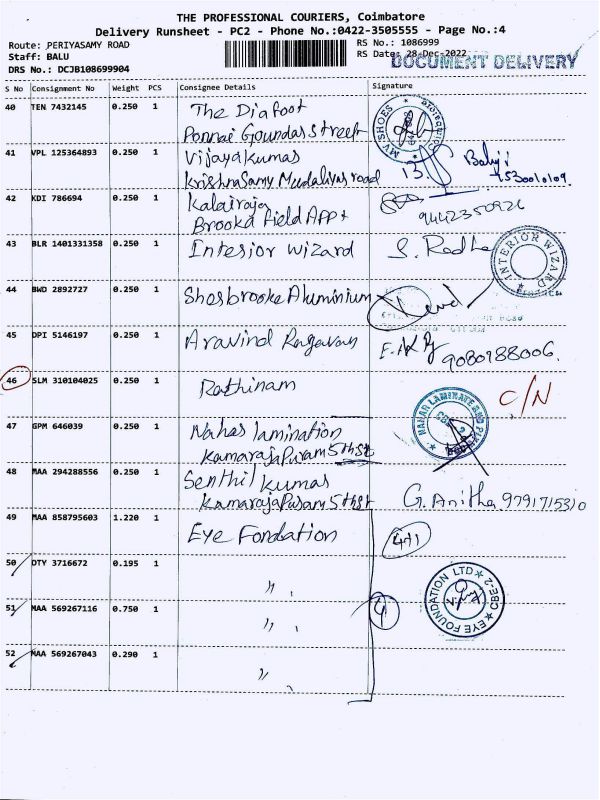 THE PROFESSIONAL COURIERS, Coimbatore
Delivery Runsheet - PC2 - Phone No.:0422-3505555 - Page No.:4
Route: PERIYASAMY ROAD
RS No.: 1086999
Staff: BALU
RS Date: 28-Dec-2022
DOCUMENT DELIVERY
DRS No.: DCJB108699904
S No Consignment No Weight PCS Consignee Details Signature
40 TEN 7432145 0.250 1 The Diafoot
Ponnai Goundar Street
MV SHOES
41 VPL 125364893 0.250 1 Vijayakumar
Krishnasamy Mudaliyar road
42 KDI 786694 0.250 1 Kalairaja
Brooke Field APPt
9442350926
43 BLR 1401331358 0.250 1 Interior Wizard S. Radha
INTERIOR WIZARD
44 BWD 2892727 0.250 1 Sherbrooke Aluminium
45 DPI 5146197 0.250 1 Aravind Ragavan
9080988006.
46 SLM 310104025 0.250 1 Rathinam C/N
47 GPM 646039 0.250 1 Nahar lamination
Kamarajapuram 5th St
NAHAR LAMINATE AND
48 MAA 294288556 0.250 1 Senthil Kumar
Kamarajapuram 5th St G. Anitha 9791715310
49 MAA 858795603 1.220 1 Eye Fondation 4+1
50 DTY 3716672 0.195 1 "
EYE FOUNDATION LTD CBE-2
51 MAA 569267116 0.750 1 "
52 MAA 569267043 0.290 1 "